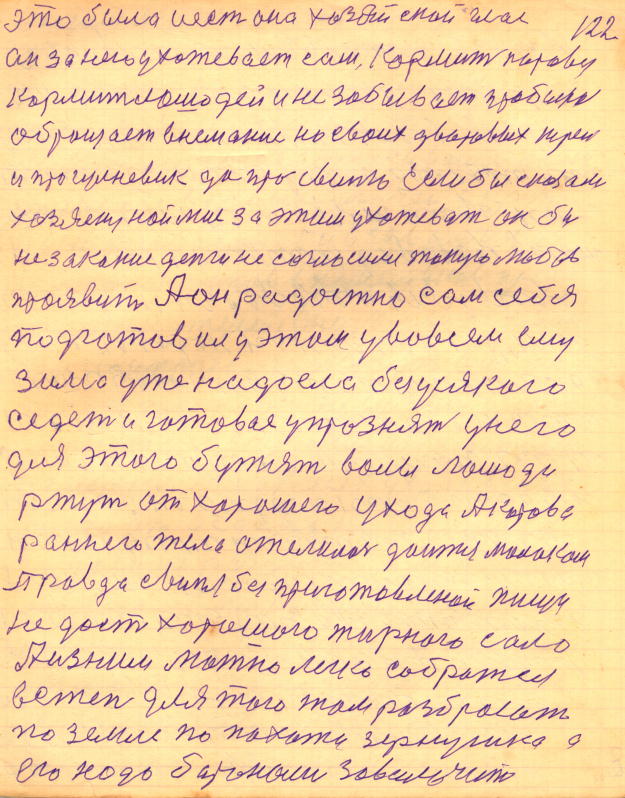 это была иест она хозяйской глас 122
он за него ухожевает сам, Кормит корову
Кормит лошодей и не забывает
оброщает внемание но своих дваровых
и да про свинью Если бы сказали
хозяену ной мне за этим ухожеват он бы
не за какие денги не согласили такую любов
проявит А он радостно сам себя
подготовил у этом увовсем ему
зима уже надоела без урякого
седет и готовае упрознят у него
для этого бужят волы лошоди
ржут от хорошего ухода А карова
раннего тела отелилоя доится молоком
Правда свиня без приготовленой пищи
не даст хорошого жирного сало
Пизнили можно легко собратся
встеп для того там разбросат
по земле по пахоти зернушка а
его нодо баронами заволочит